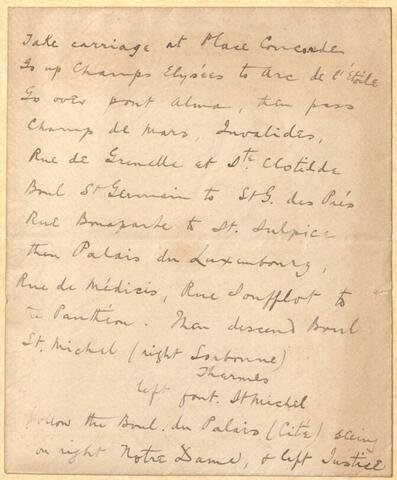 Take carriage at Place Concorde
Go up Champs Elysées to Arc de l'Étoile
Go over pont Alma, then pass
Champ de Mars, Invalides,
Rue de Grenelle et Ste Clotilde
Boul St Germain to St G. des Prés
Rue Bonaparte to St. Sulpice
then Palais du Luxembourg,
Rue de Médicis, Rue Soufflot to
the Panthéon. Then descend Boul
St. Michel (right Sorbonne)
Thermes
left font. St Michel
Follow the Boul. du Palais (Cité) seeing
on right Notre Dame, & left Justice